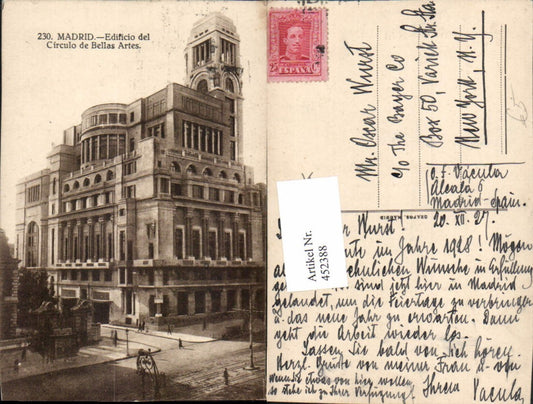 230. MADRID.—Edificio del
Círculo de Bellas Artes.
ESPAÑA
Mr. Oscar Wurst
c/o The Bayer Co
Box 50, Varick Str. Sta.
New York, N.Y.
65
O. F. Vacula
Alcalá 6
Madrid-Spain.
20. XII. 27.
Artikel Nr.
452388
Wurst!
im Jahre 1928! Mögen
Wünsche in Erfüllung
sind jetzt hier in Madrid
gelandet, um die Feiertage zu verbringen
u. das neue Jahr zu erwarten. Dann
geht die Arbeit wieder los.
Lassen Sie bald von Sich hören.
Herzl. Grüsse von meiner Frau u. von
Wenn Sie etwas von hier wollen, Ihrem
so stehe ich zu Ihrer Verfügung! Vacula